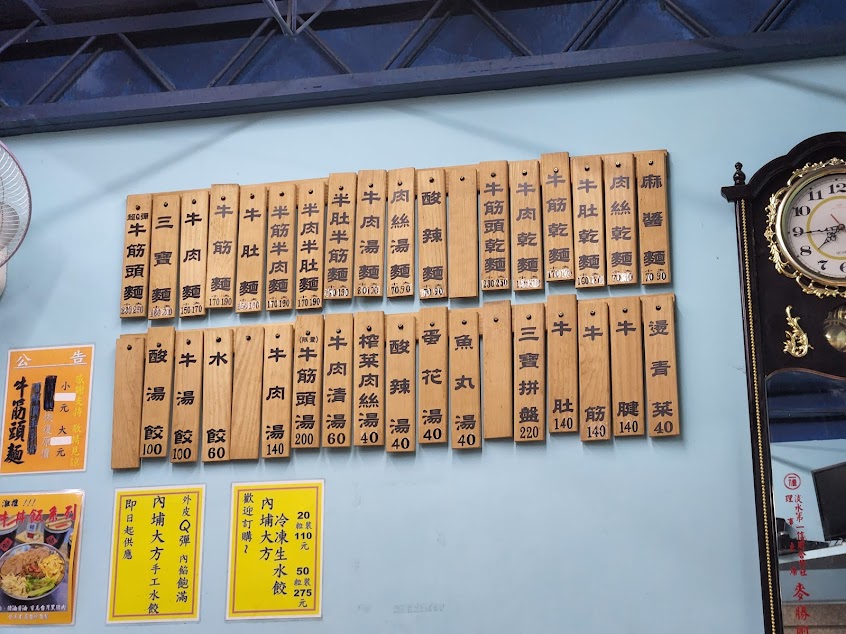 超Q彈
牛筋頭麵
三寶麵
牛肉麵
牛筋麵
170 190
牛肚麵
半筋半肉麵
170 190
半肉半肚麵
170 190
半肚半筋麵
牛肉湯麵
肉絲湯麵
70 90
酸辣麵
70 90
牛筋頭乾麵
230 250
牛肉乾麵
牛筋乾麵
牛肚乾麵
肉絲乾麵
麻醬麵
70 90
酸湯餃
100
牛湯餃
100
水餃
60
牛肉湯
140
牛筋頭湯
200
牛肉清湯
60
榨菜肉絲湯
40
酸辣湯
40
蛋花湯
40
魚丸湯
40
三寶拼盤
220
牛肚
140
牛筋
140
牛腱
140
燙青菜
40
公告
牛筋頭麵
小 元 大 元
牛丼飯系列
外皮Q彈 內餡飽滿
內埔大方手工水餃
即日起供應
20粒裝110元
50粒裝275元
冷凍生水餃
內埔大方
歡迎訂購~
12
11
10
9
8
7
6